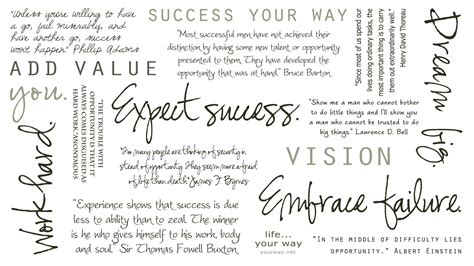 "Unless you're willing to have
a go, fail miserably, and
have another go, success
won't happen" Phillip Adams
SUCCESS YOUR WAY
"Most successful men have not achieved their
distinction by having some new talent or opportunity
presented to them. They have developed the
opportunity that was at hand." Bruce Barton
"Since most of us spend our
lives doing ordinary tasks, the
most important thing is to carry
them out extraordinarily well."
Henry David Thoreau
Dream big.
ADD VALUE
you.
THE TROUBLE WITH
OPPORTUNITY IS THAT IT
ALWAYS COMES DISGUISED AS
HARD WORK. ANONYMOUS
Expect success.
"Show me a man who cannot bother
to do little things and I'll show you
a man who cannot be trusted to do
big things." Lawrence D. Bell
Work hard.
"Too many people are thinking of security in
stead of opportunity. They seem more afraid
of life than death" James F. Byrnes
VISION
"Experience shows that success is due
less to ability than to zeal. The winner
is he who gives himself to his work, body
and soul." Sir Thomas Fowell Buxton
Embrace failure.
life...
your way
yourway.net
"IN THE MIDDLE OF DIFFICULTY LIES
OPPORTUNITY." ALBERT EINSTEIN